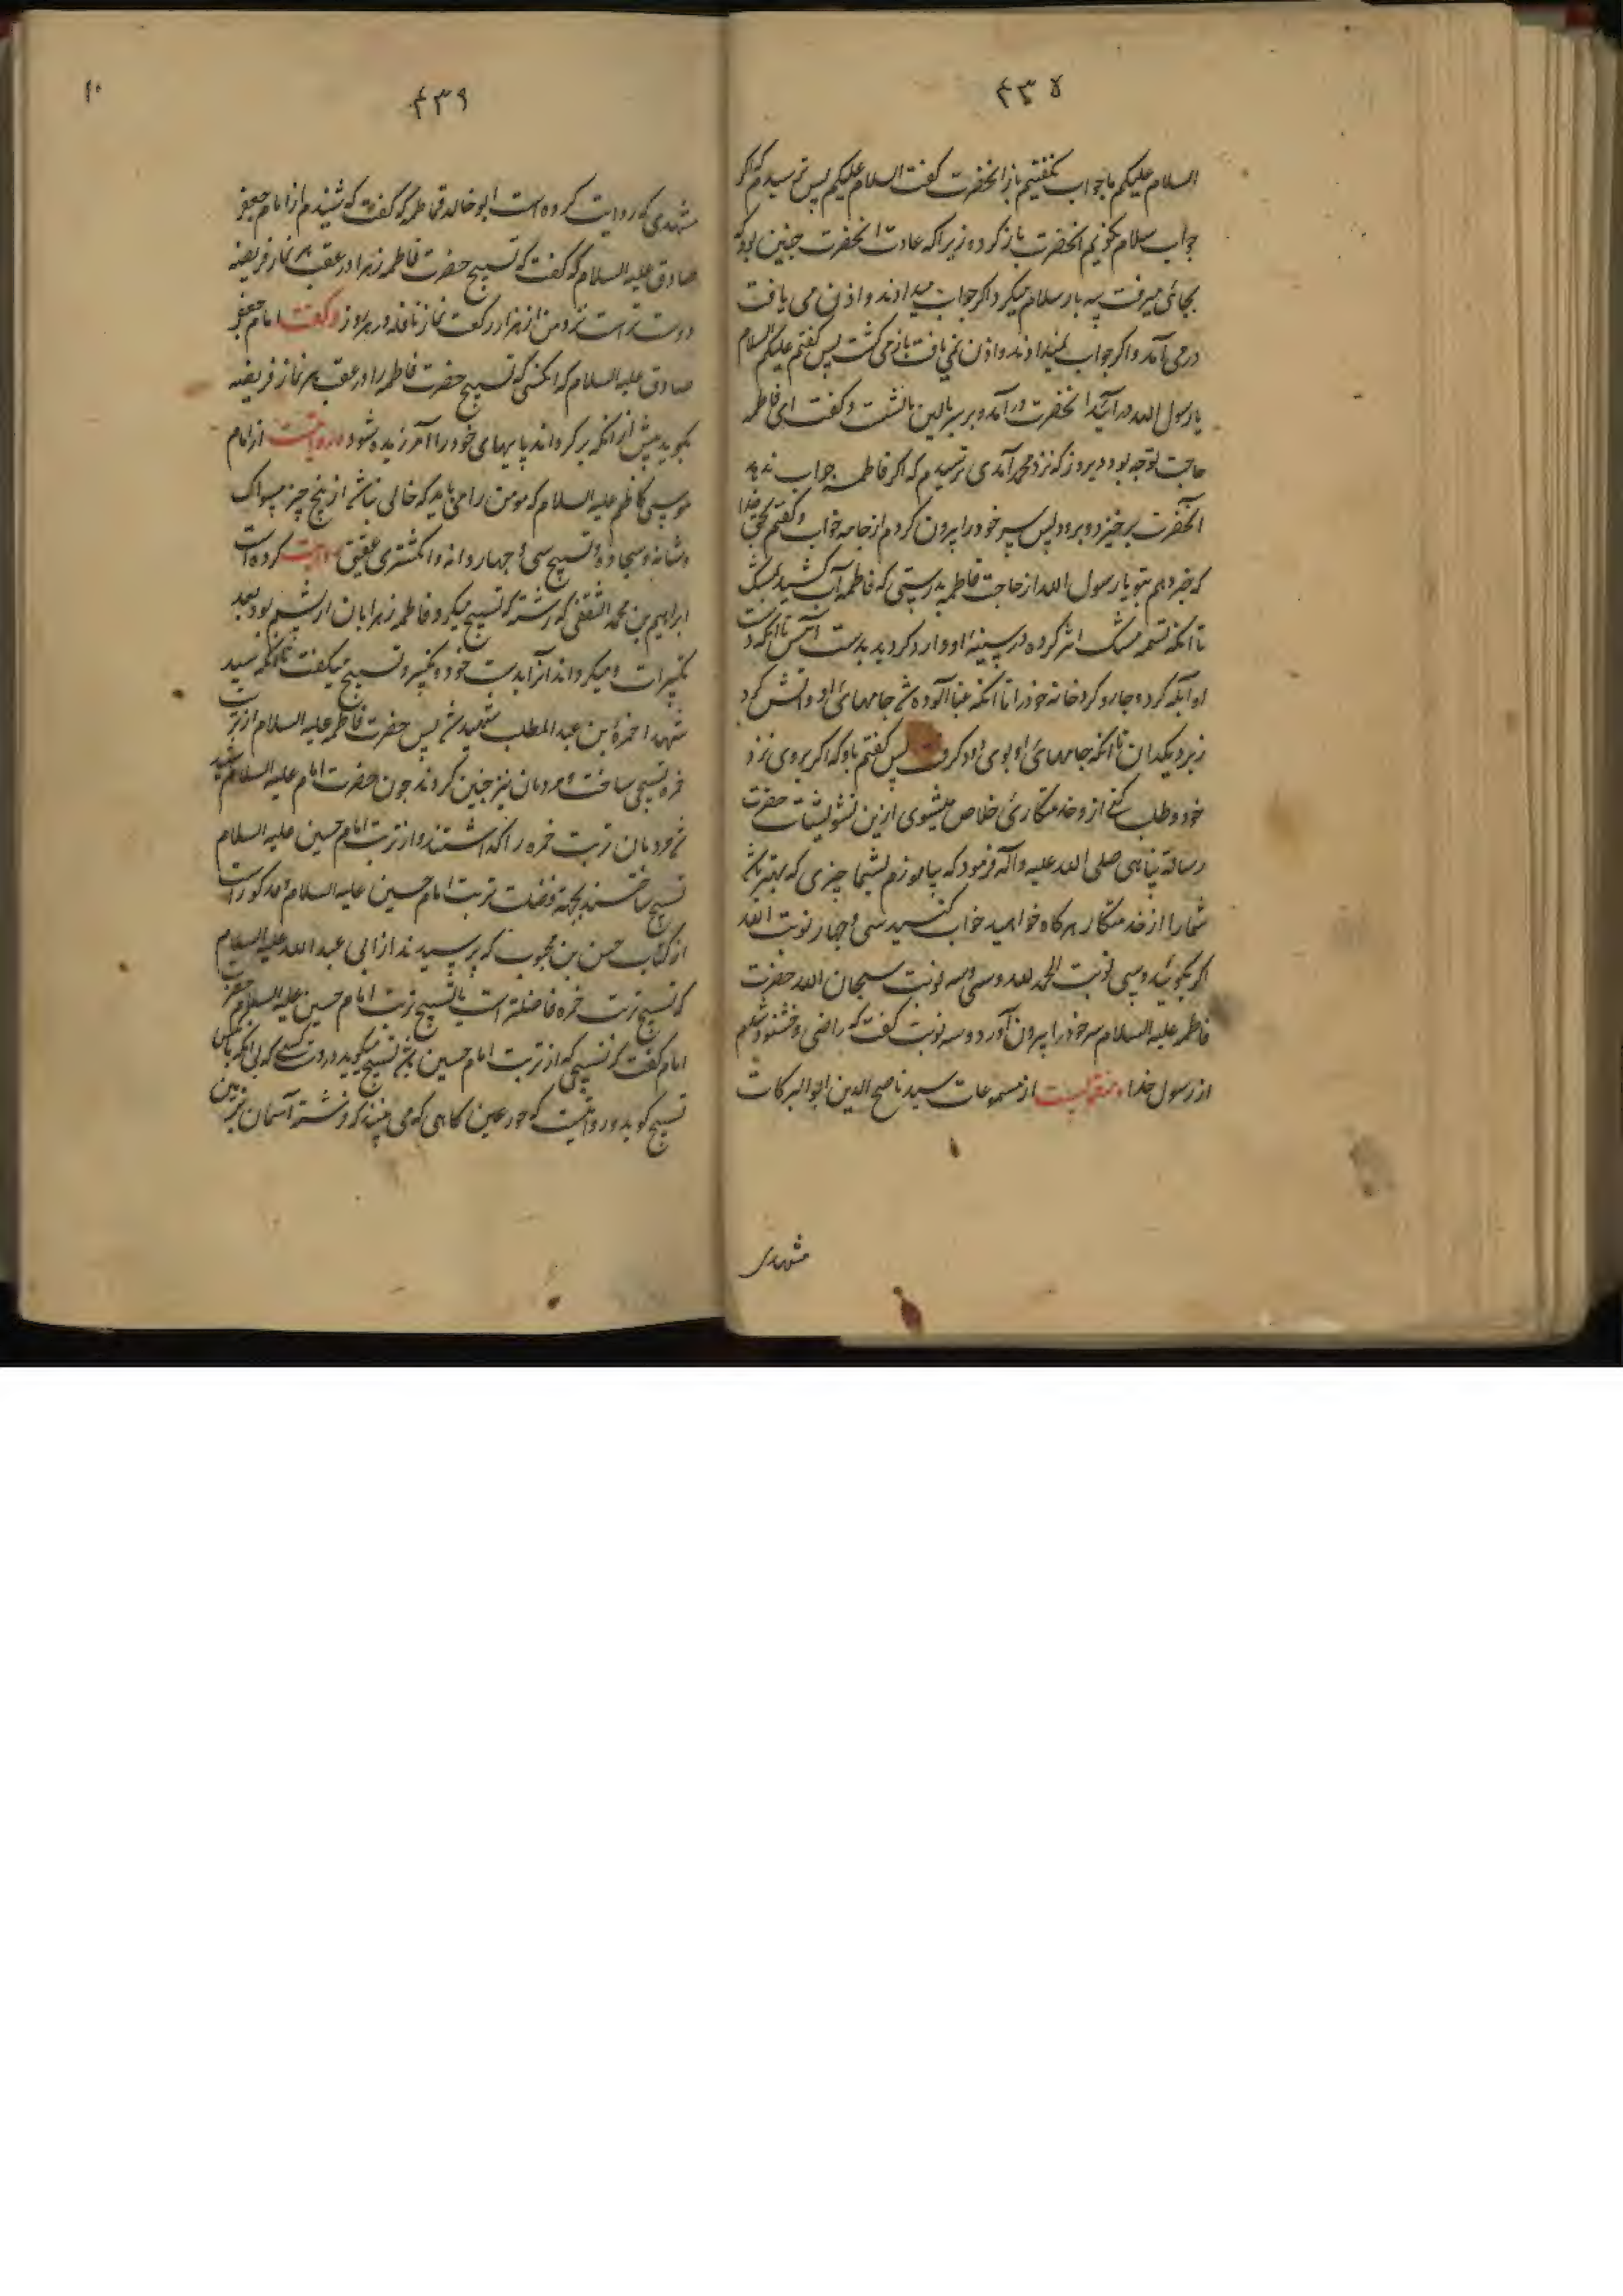 ٤٣٥
السلام علیکم ما جواب نکفتیم باز انحضرت کفت السلام علیکم پس ترسیدم که اکر
جواب سلام نکوئیم انحضرت باز کردد زیرا که عادت انحضرت چنین بود که
بجائی میرفت سه بار سلام میکرد اکر جواب میدادند و اذن می یافت
در می آمد و اکر جواب نمیدادند و اذن نمی یافت باز می کشت پس کفتم علیکم السلام
یا رسول الله در آئید انحضرت در آمد و بر سر بالین ما نشست و کفت ای فاطمه
حاجت تو چه بود دیروز که نزد محمد آمدی ترسیدم که اکر فاطمه جواب ندهد
آنحضرت برخیزد و برود پس سر خود را بیرون کردم از جامه خواب و کفتم بحق خدا
که خبر دهم بتو یا رسول الله از حاجت فاطمه بدرستی که فاطمه آب کشید بمشک
تا انکه تسمه مشک اثر کرده در سینه او و ارد کردید بدست آس تا انکه دست
او آبله کرد و جارو کرد خانه خود را تا انکه غبار آلوده شد جامهای او و آتش کرد
زیر دیکدان تا انکه جامهای او بوی دود کرفت پس کفتم باو که اکر بروی نزد
خود و طلب کنی از و خدمتکاری خلاص میشوی ازین تشویشات حضرت
رسالة پناهی صلی الله علیه و آله فرمود که بیاموزم بشما چیزی که بهتر باشد
شما را از خدمتکار هر کاه خواهید خواب کنید سی و چار نوبت الله
اکبر بکوئید و سی نوبت الحمد لله و سی و سه نوبت سبحان الله حضرت
فاطمه علیه السلام سر خود را بیرون آورد و سه نوبت کفت که راضی و خشنود شدم
از رسول خدا منقبت از مسموعات سید ناصح الدین ابو البرکات
مشهدی
٤٣٩
مشهدی که روایت کرده است ابو خالد قماط که کفت که شنیدم از امام جعفر
صادق علیه السلام که کفت که تسبیح حضرت فاطمه زهرا در عقب هر نماز فریضه
دوست تر است نزد من از هزار رکعت نماز نافله در هر روز و کفت امام جعفر
صادق علیه السلام که انکسی که تسبیح حضرت فاطمه را در عقب هر نماز فریضه
بکوید پیش از انکه بر کرداند پایهای خود را آمرزیده شود روایت از امام
موسی کاظم علیه السلام که مومن را می باید که خالی نباشد از پنج چیز مسواک
و شانه و سجاده و تسبیح سی و چهار دانه و انکشتری عقیق روایت کرده است
ابراهیم بن محمد الثقفی که رشته که تسبیح میکرد فاطمه زهرا بان از پشم بود بعدد
تکبیرات و میکرداند آنرا بدست خود و تکبیر و تسبیح میکفت تا انکه سید
شهدا حمزة بن عبد المطلب شهید شد پس حضرت فاطمه علیه السلام از تربت
حمزه تسبیحی ساخت و مردمان نیز چنین کردند چون حضرت امام علیه السلام شهید
شد مردمان تربت حمزه را کذاشتند و از تربت امام حسین علیه السلام
تسبیح ساختند بجهة فضیلت تربت امام حسین علیه السلام مذکور است
از کتاب حسن بن محبوب که پرسیدند از ابی عبد الله علیه السلام
که تسبیح تربت حمزه فاضلتر است یا تسبیح تربت امام حسین علیه السلام حضرت
امام کفت که تسبیحی که از تربت امام حسین باشد تسبیح میکوید در دست کسی که بی انکه انکس
تسبیح کوید و روایتست که حور عین کاهی که می بینند که فرشته آسمان بزمین